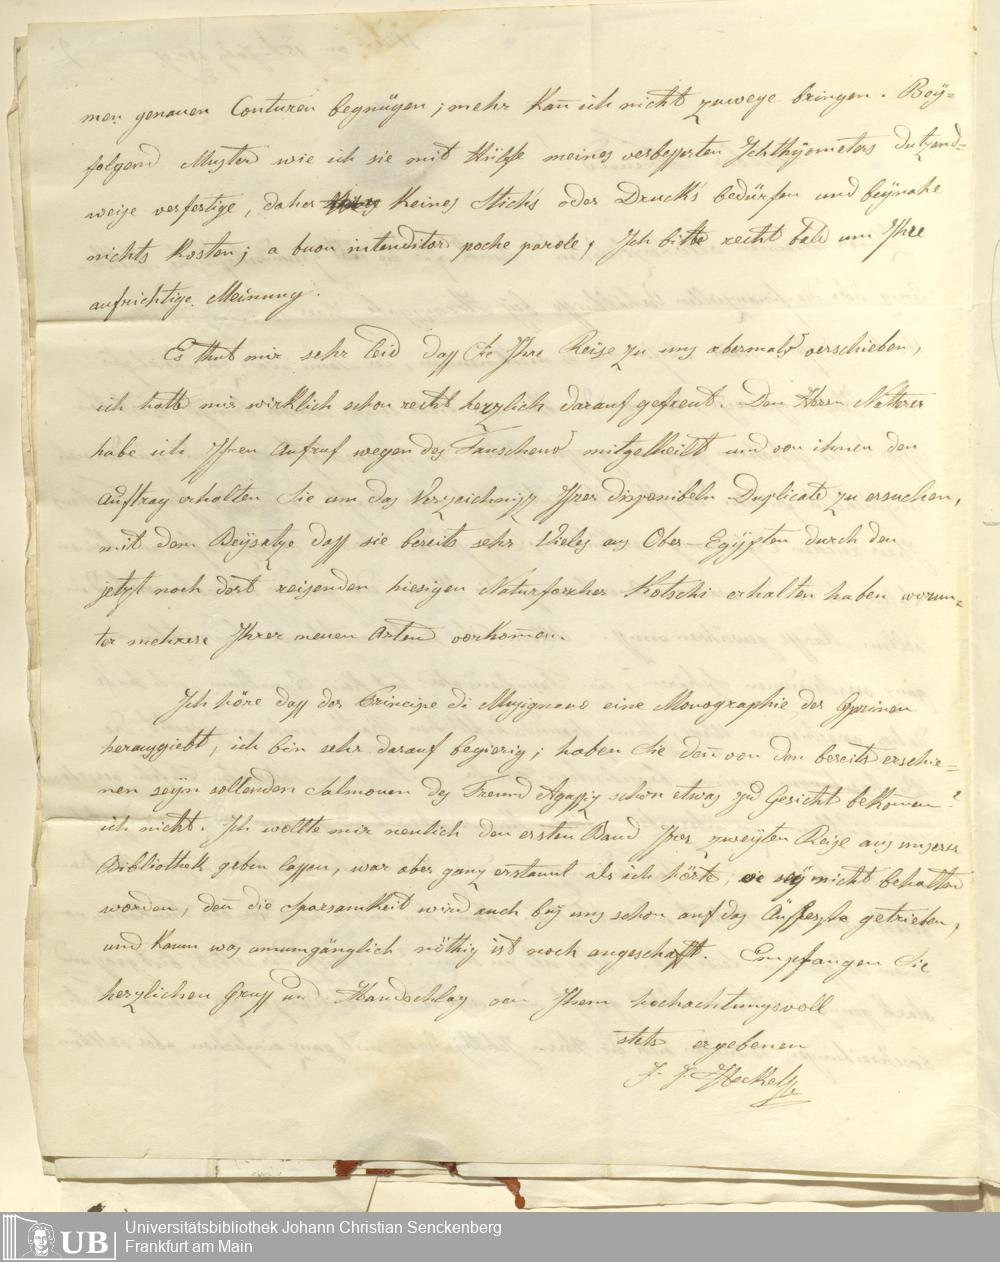 men genauen Conturen begnügen; mehr kan̄ ich nicht zuwege bringen. Bey=
folgend Muster wie ich sie mit Hülfe meines verbesserten Ichthyometers dutzend=
weise verfertige, daher keines Stich's oder Druck's bedürfen und beynahe
nichts kosten; a buon intenditor poche parole, Ich bitte recht bald um Ihre
aufrichtige Meinung.
Es thut mir sehr leid dass Sie Ihre Reise zu uns abermals verschieben,
ich hatte mir wirklich schon recht herzlich darauf gefreut. Den Herrn Natterer
habe ich Ihren Aufruf wegen des Tauschens mitgetheilt und von ihnen den
Auftrag erhalten Sie um das Verzeichniss Ihrer disponibeln Duplicate zu ersuchen,
mit dem Beysatze dass sie bereits sehr Vieles aus Ober-Egypten durch den
jetzt noch dort reisenden hiesigen Naturforscher Kotschi erhalten haben worun=
ter mehrere Ihrer neuen Arten vorkom̄en.
Ich höre dass der Principe di Musignano eine Monographie der Cyprinen
herausgiebt, ich bin sehr darauf begierig; haben Sie den̄ von den bereits erschie=
nen seyn sollenden Salmonen des Freund Agassiz schon etwas zu Gesicht bekom̄en?
ich nicht. Ich wollte mir neulich den ersten Band Ihrer zweyten Reise aus unserer
Bibliothek geben lassen, war aber ganz erstaunt als ich hörte, sie sey nicht behalten
worden, den̄ die Sparsamkeit wird auch bey uns schon auf das Äusserste getrieben,
und kaum was unumgänglich nöthig ist noch angeschafft. Empfangen Sie
herzlichen Gruss und Handschlag von Ihrem hochachtungsvoll
stets ergebenen
J. J. Heckel
UB
Universitätsbibliothek Johann Christian Senckenberg
Frankfurt am Main